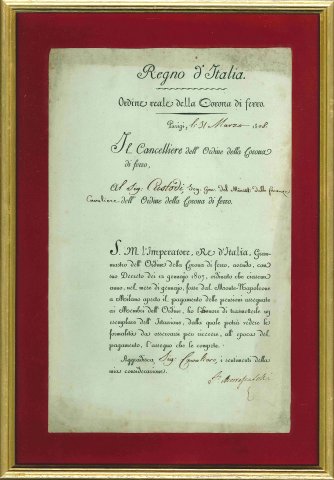 Regno d'Italia.
Ordine reale della Corona di ferro.
Parigi, li 31 Marzo 1808.
Il Cancelliere dell' Ordine della Corona
di ferro,
Al Sig. Custodi, Seg. Gen. del Minist. delle Finanze
Cavaliere dell' Ordine della Corona di ferro.
S. M. l'Imperatore, Re d'Italia, Gran-
mastro dell' Ordine della Corona di ferro, avendo, con
suo Decreto dei 12 gennajo 1807, ordinato che ciascun
anno, nel mese di gennajo, fosse dal Monte-Napoleone
a Milano aperto il pagamento delle pensioni assegnate
ai Membri dell' Ordine, ho l'onore di trasmetterle un
esemplare dell' Istruzione, dalla quale potrà vedere le
formalità da osservarsi per ricevere, all' epoca del
pagamento, l'assegno che le compete.
Aggradisca, Sig. Cavaliere, i sentimenti della
mia considerazione.